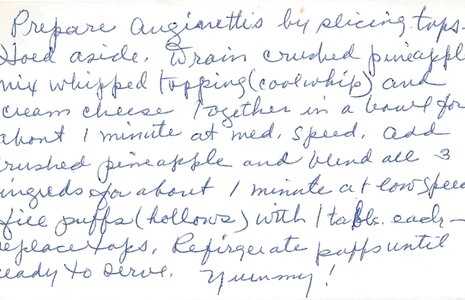 Prepare Anginettis by slicing tops.
Hoed aside. Drain crushed pineapple
mix whipped topping (coolwhip) and
cream cheese together in a bowl for
about 1 minute at med. speed. add
crushed pineapple and blend all 3
ingreds for about 1 minute at low speed
fill puffs (hollows) with 1 tabls. each —
replace tops. Refirgerate puffs until
ready to serve. Yummy!